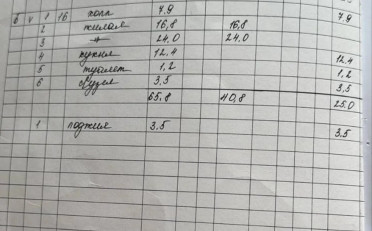 6 v 1 16 колл 7.9 7.9
2 жилая 16,8 16,8
3 -"- 24,0 24,0
4 кухня 12.4 12.4
5 туалет 1,2 1,2
6 с/узел 3,5 3,5
65,8 40,8 25.0
1 лоджия 3.5 3.5